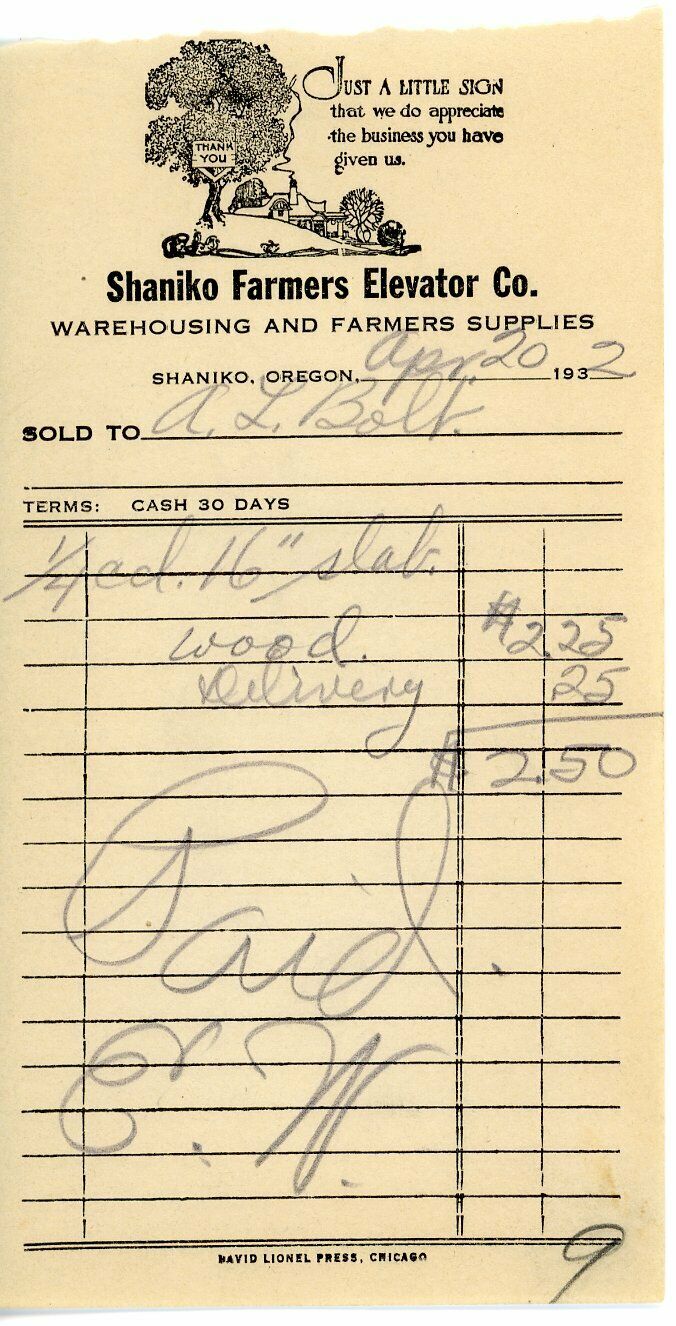 JUST A LITTLE SIGN
that we do appreciate
the business you have
given us.
THANK
YOU
Shaniko Farmers Elevator Co.
WAREHOUSING AND FARMERS SUPPLIES
SHANIKO, OREGON, Apr 20 1932
SOLD TO A. L. Bolt.
TERMS: CASH 30 DAYS
1/4 cd. 16" slab.
wood. $2.25
Delivery 25
$2.50
Paid.
E. W.
DAVID LIONEL PRESS, CHICAGO
9